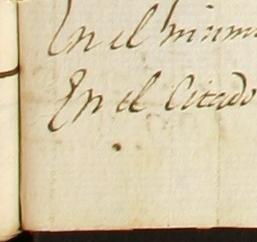 En el mism
En el Citado